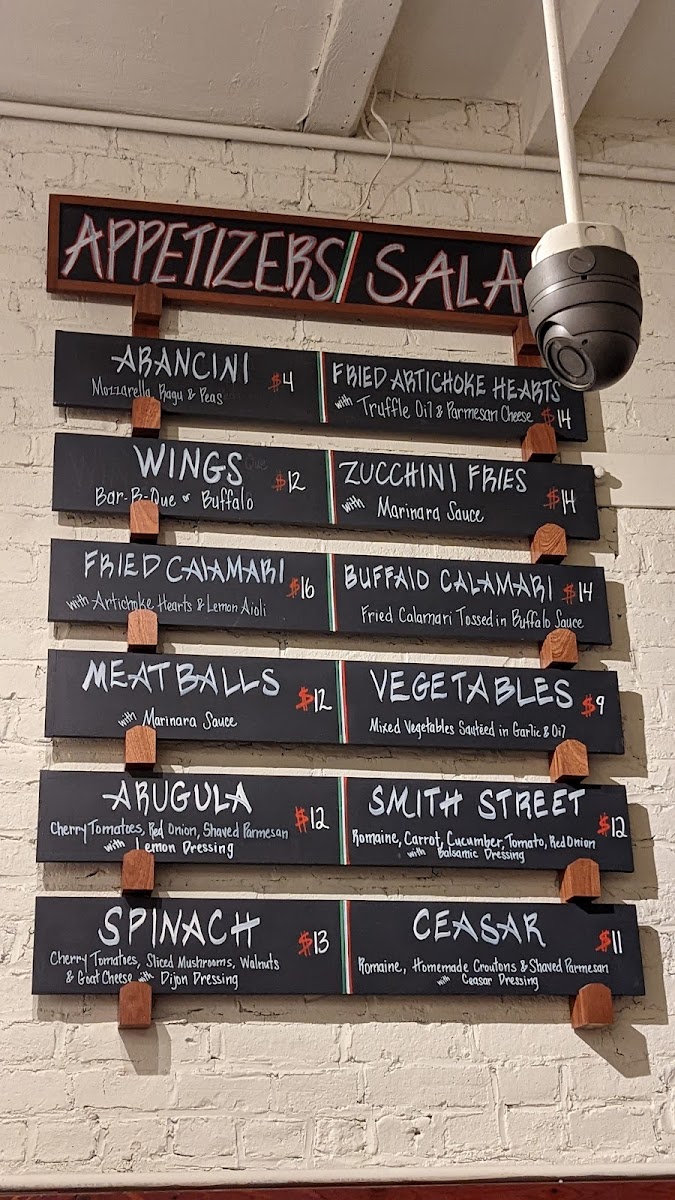 APPETIZERS/SALA
ARANCINI $4
Mozzarella, Ragu & Peas
FRIED ARTICHOKE HEARTS
with Truffle Oil & Parmesan Cheese $14
WINGS $12
Bar-B-Que or Buffalo
ZUCCHINI FRIES $14
with Marinara Sauce
FRIED CALAMARI $16
with Artichoke Hearts & Lemon Aioli
BUFFALO CALAMARI $14
Fried Calamari Tossed in Buffalo Sauce
MEATBALLS $12
with Marinara Sauce
VEGETABLES $9
Mixed Vegetables Sautéed in Garlic & Oil
ARUGULA $12
Cherry Tomatoes, Red Onion, Shaved Parmesan
with Lemon Dressing
SMITH STREET $12
Romaine, Carrot, Cucumber, Tomato, Red Onion
with Balsamic Dressing
SPINACH $13
Cherry Tomatoes, Sliced Mushrooms, Walnuts
& Goat Cheese with Dijon Dressing
CEASAR $11
Romaine, Homemade Croutons & Shaved Parmesan
with Ceasar Dressing